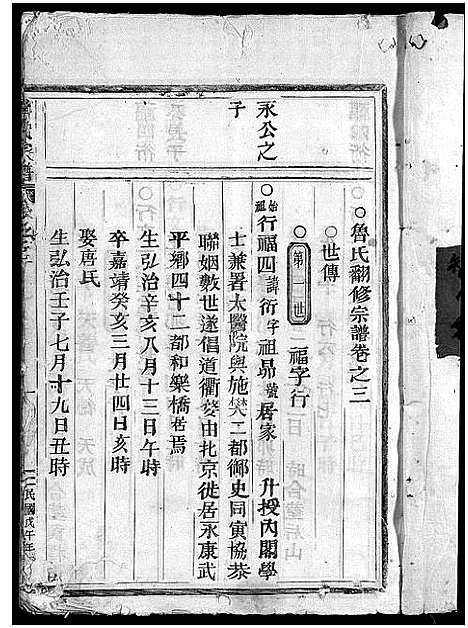 ○魯氏翻修宗譜卷之三
○世傳
○第一世 福字行
永公之子
○始祖行福四諱衍字祖昴號居家 升授內閣學
士兼署太醫院與施焚二都御史同寅協恭
聯姻數世遂倡道衢婺由北京徙居永康武
平鄉四十二都和樂橋居焉
生弘治辛亥八月十三日午時
卒嘉靖癸亥三月廿四日亥時
娶唐氏
生弘治壬子七月十九日丑時
民國戊午年